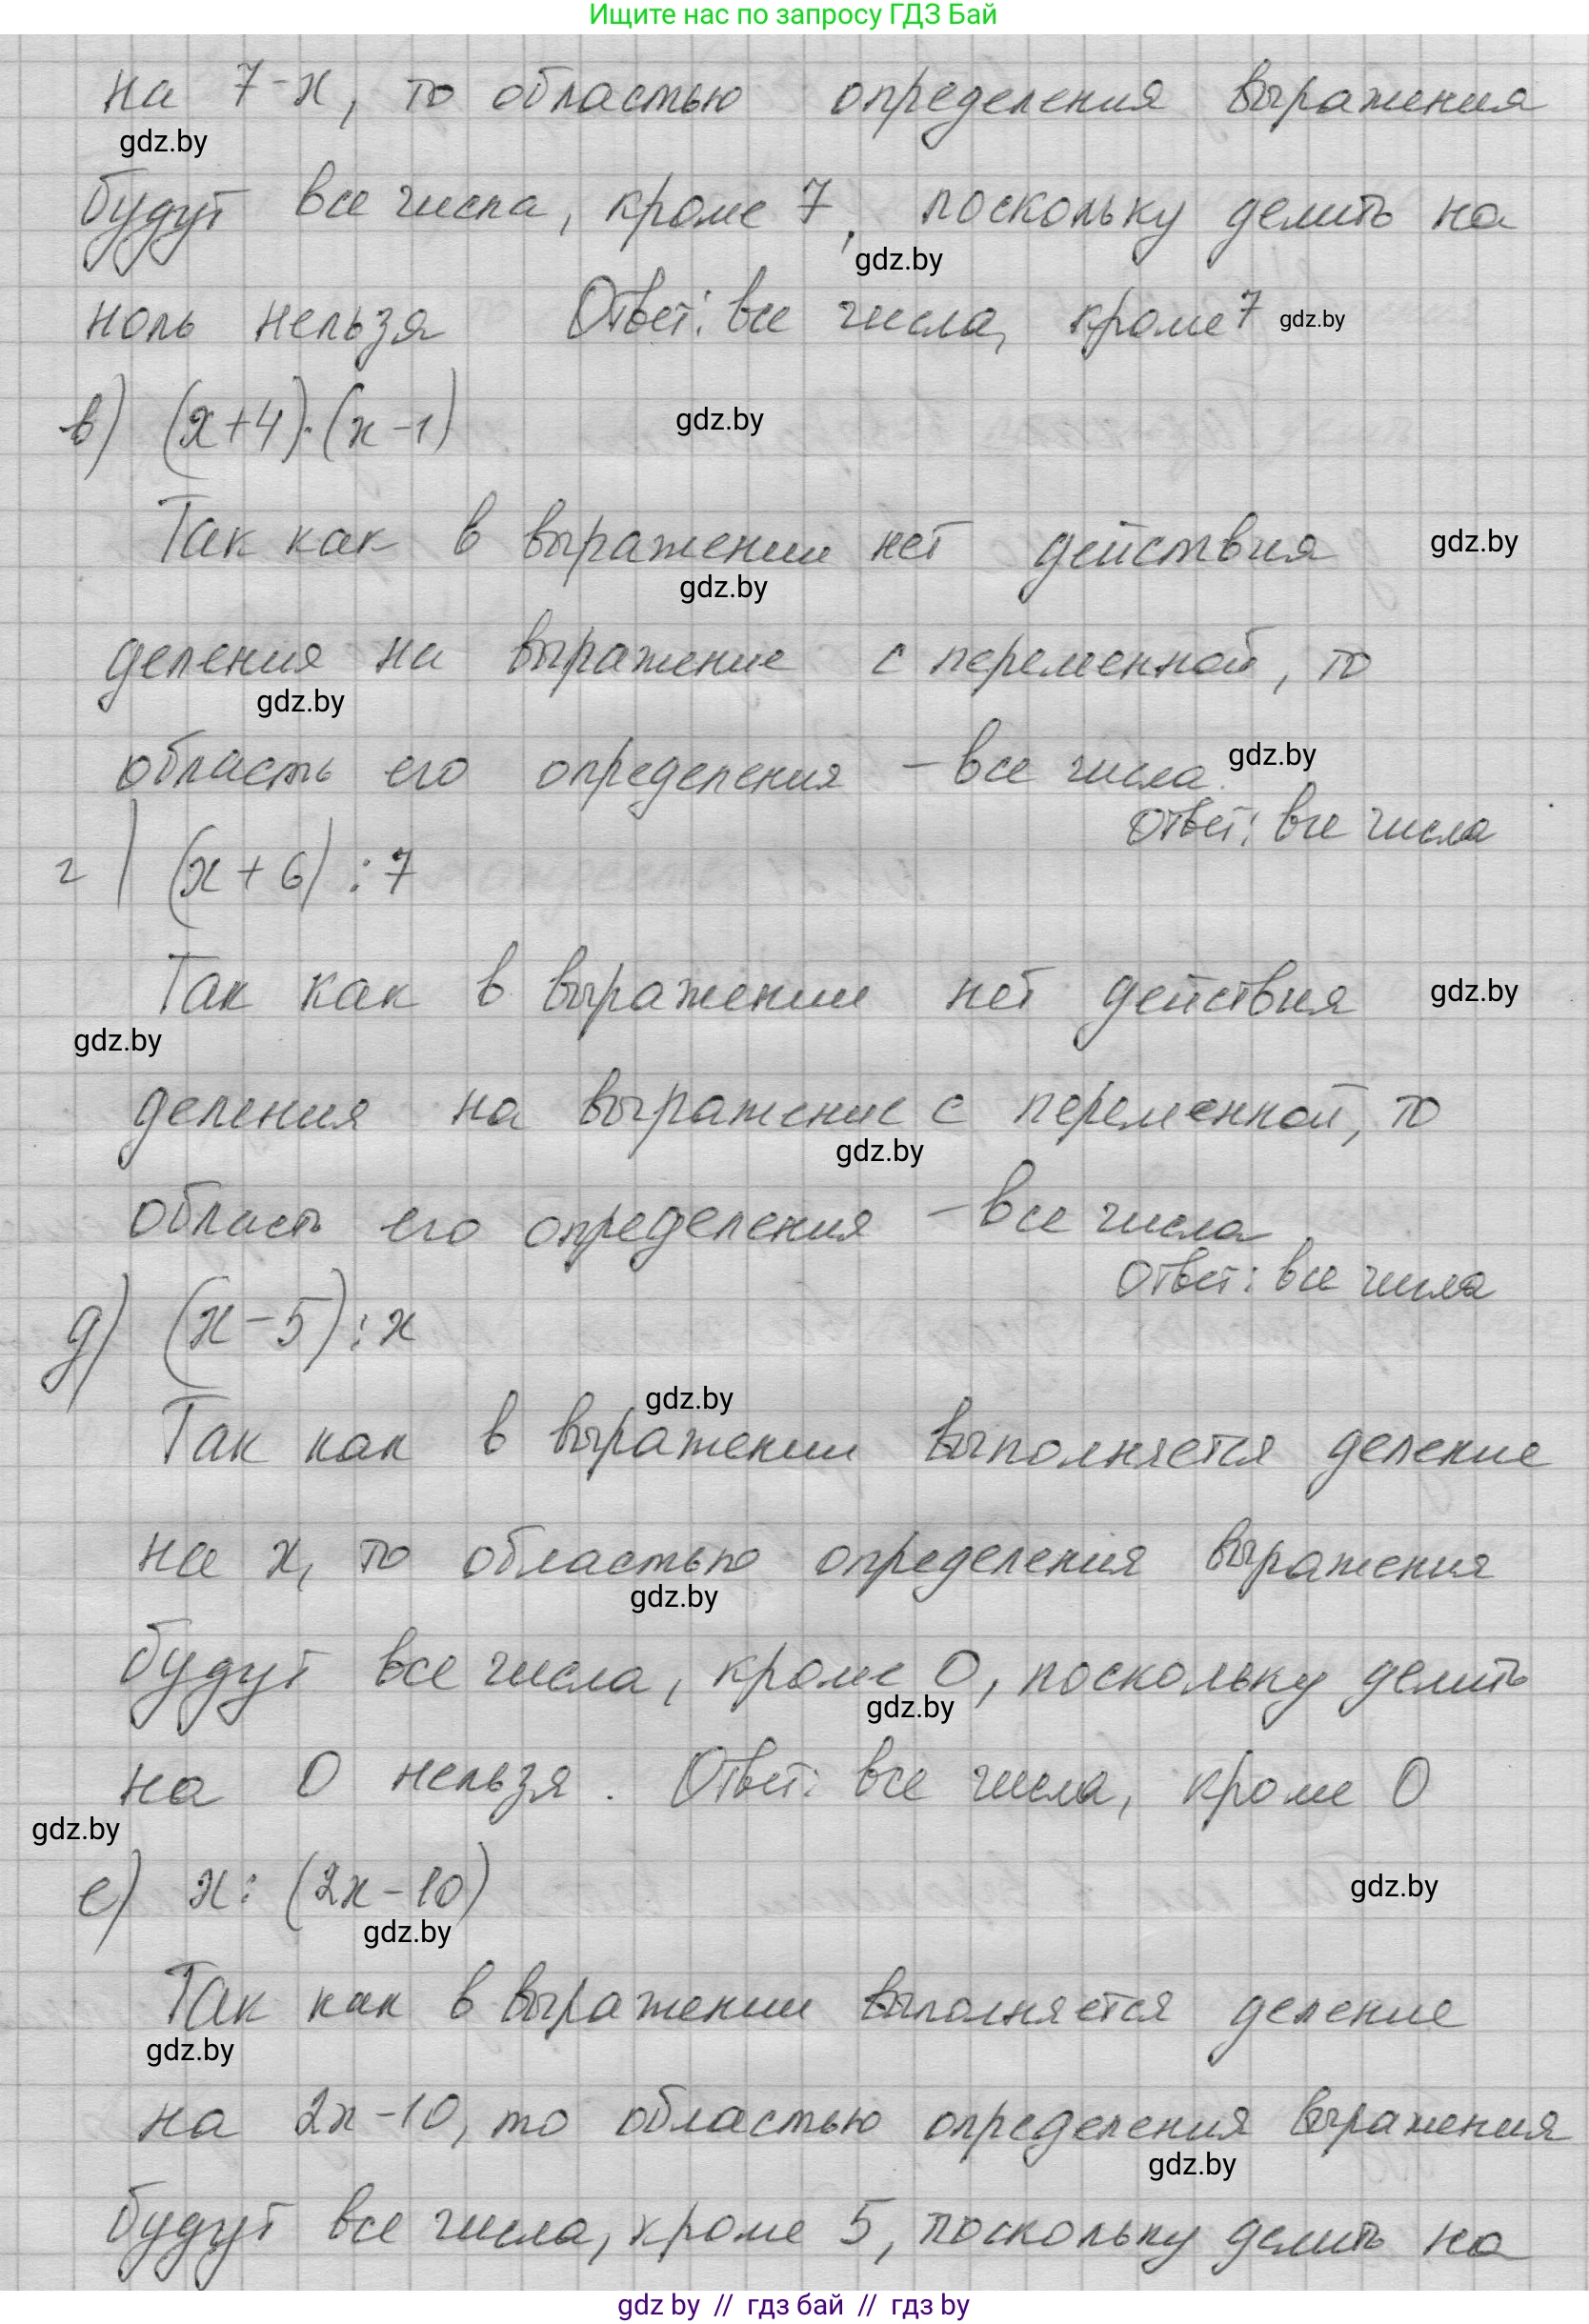 Ищите нас по запросу ГДЗ Бай
на 7-x, то областью определения выражения
gdz.by
будут все числа, кроме 7, поскольку делить на
gdz.by
ноль нельзя Ответ: все числа, кроме 7 gdz.by
в) (x+4)·(x-1) gdz.by
Так как в выражении нет действия gdz.by
gdz.by
деления на выражение с переменной, то
gdz.by
область его определения - все числа. gdz.by
Ответ: все числа
г) (x+6):7
Так как в выражении нет действия gdz.by
gdz.by
деления на выражение с переменной, то
gdz.by
область его определения - все числа.
Ответ: все числа
д) (x-5):x
gdz.by
Так как в выражении выполняется деление
на x, то областью определения выражения
gdz.by
будут все числа, кроме 0, поскольку делить
gdz.by
на 0 нельзя. Ответ: все числа, кроме 0
gdz.by
е) x:(2x-10) gdz.by
gdz.by
Так как в выражении выполняется деление
gdz.by
на 2x-10, то областью определения выражения
gdz.by
будут все числа, кроме 5, поскольку делить на
gdz by // гдз бай // гдз by